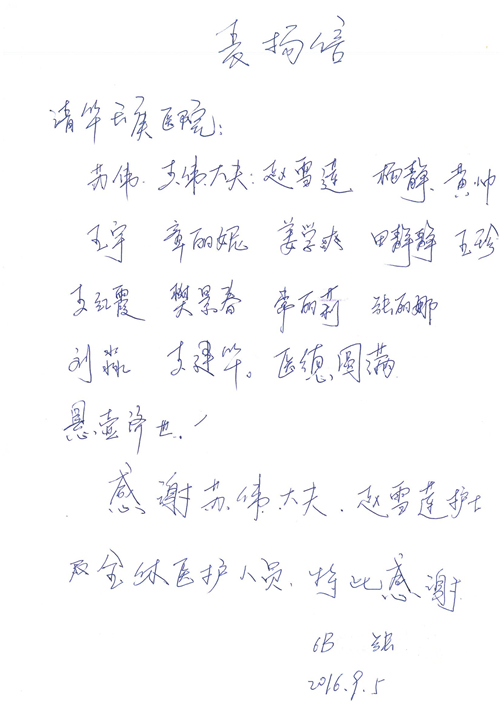 表扬信
清华云康医院：
苏伟 支伟大夫：赵雪莲 柏静 黄帅
王宇 章丽妮 姜学爽 田静静 王珍
支红霞 樊景春 常丽莉 张丽娜
刘淼 支建华。医德圆满
悬壶济世．！
感谢苏伟大夫．赵雪莲护士
及全体医护人员，特此感谢
6B 张
2016.9.5